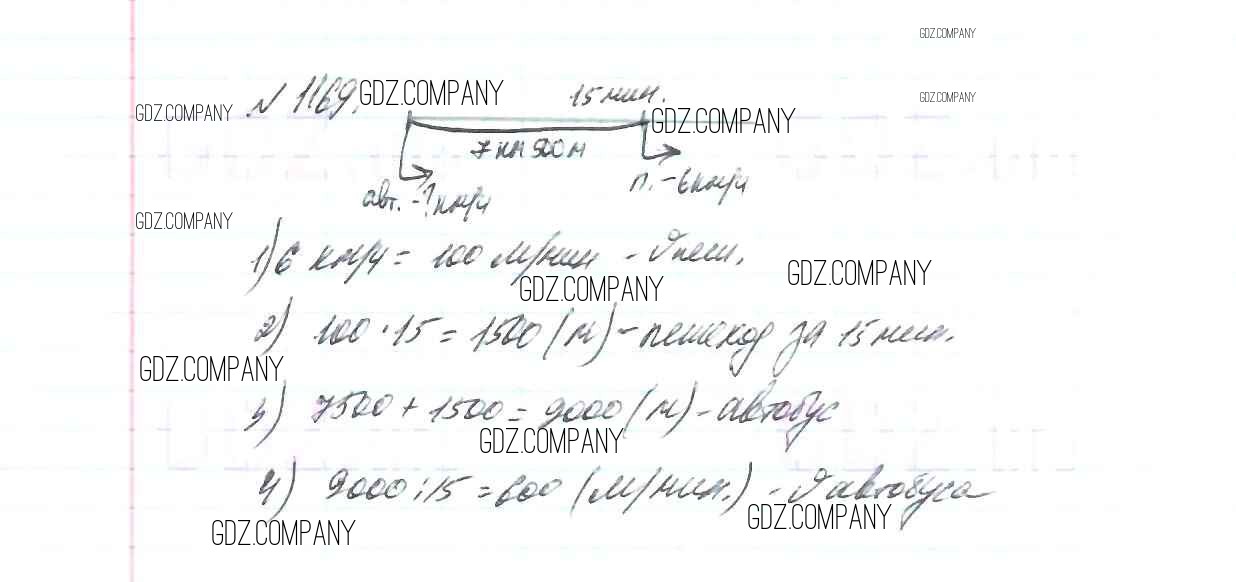 GDZ.COMPANY
GDZ.COMPANY
GDZ.COMPANY
GDZ.COMPANY
№ 1169.
15 мин.
GDZ.COMPANY
7 км 500 м
п. – 6 км/ч
авт. – ? км/ч
GDZ.COMPANY
1) 6 км/ч = 100 м/мин – υ пеш.
GDZ.COMPANY
GDZ.COMPANY
2) 100 · 15 = 1500 (м) – пешеход за 15 мин.
GDZ.COMPANY
3) 7500 + 1500 = 9000 (м) – автобус
GDZ.COMPANY
4) 9000 : 15 = 600 (м/мин.) – υ автобуса
GDZ.COMPANY
GDZ.COMPANY